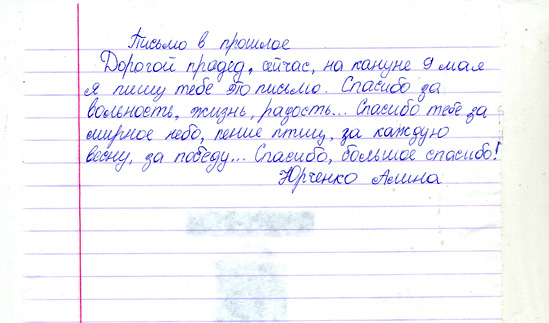 Письмо в прошлое
Дорогой прадед, сейчас, на кануне 9 мая
я пишу тебе это письмо. Спасибо за
вольность, жизнь, радость... Спасибо тебе за
мирное небо, пение птиц, за каждую
весну, за победу... Спасибо, большое спасибо!
Юрченко Алина